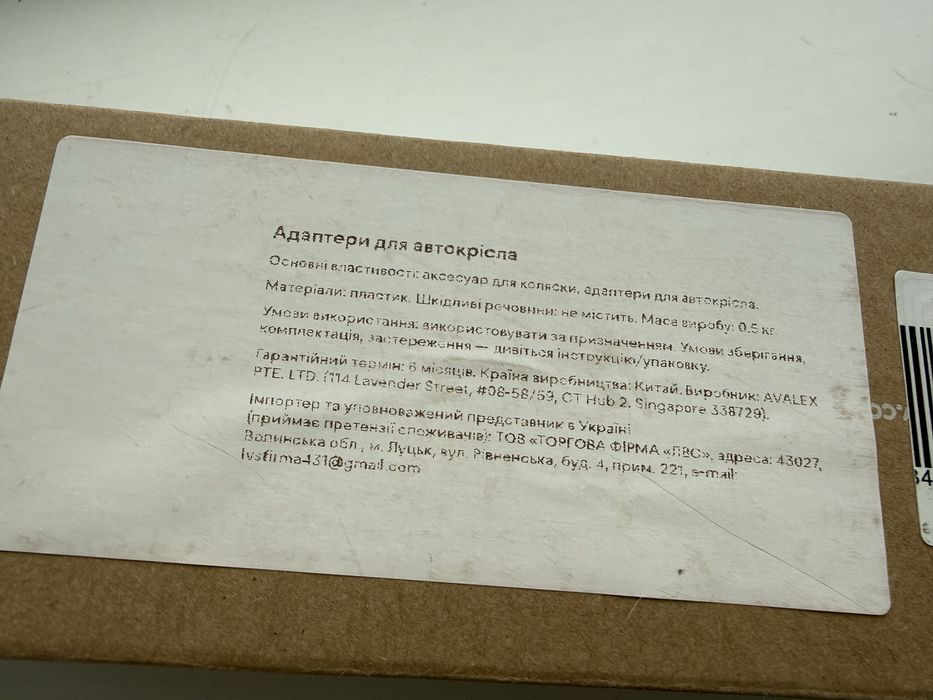 Адаптери для автокрісла
Основні властивості: аксесуар для коляски, адаптери для автокрісла.
Матеріали: пластик. Шкідливі речовини: не містить. Маса виробу: 0.5 кг.
Умови використання: використовувати за призначенням. Умови зберігання,
комплектація, застереження — дивіться інструкцію/упаковку.
Гарантійний термін: 6 місяців. Країна виробництва: Китай. Виробник: AVALEX
PTE. LTD. (114 Lavender Street, #08-58/59, CT Hub 2, Singapore 338729).
Імпортер та уповноважений представник в Україні
(приймає претензії споживачів): ТОВ «ТОРГОВА ФІРМА «ЛВС», адреса: 43027,
Волинська обл., м. Луцьк, вул. Рівненська, буд. 4, прим. 221, e-mail:
lvsfirma431@gmail.com